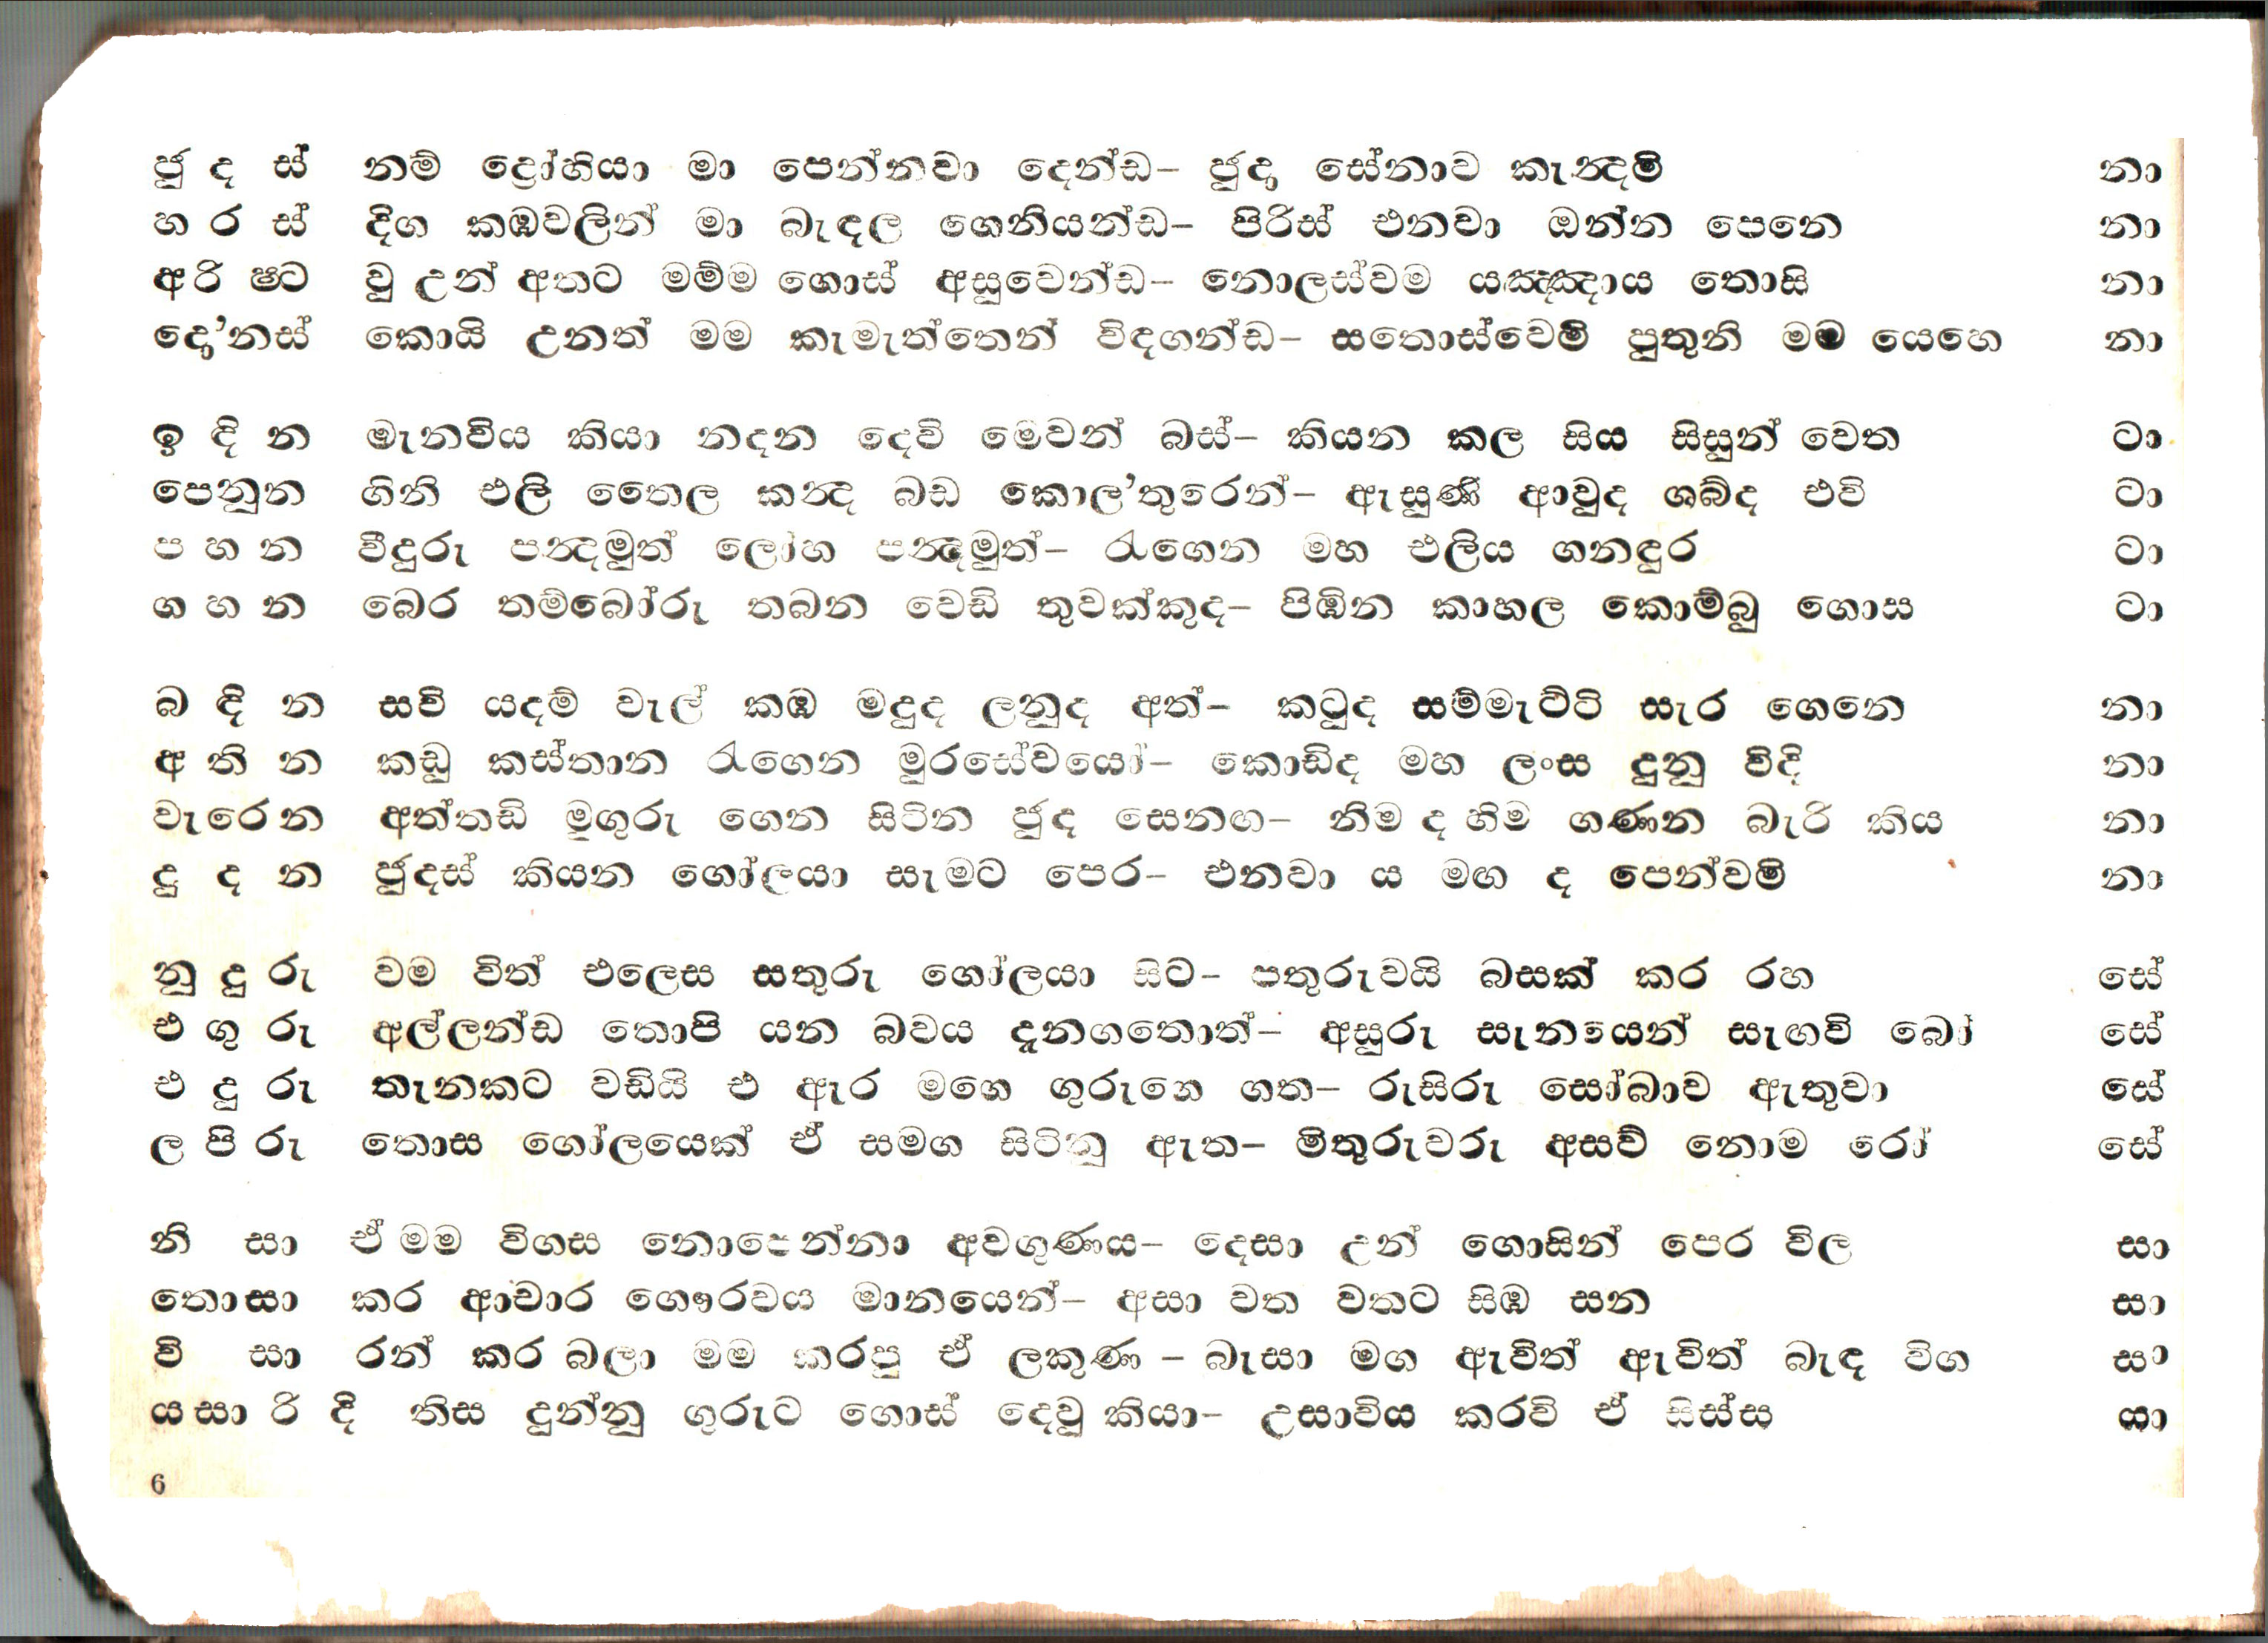 ජු ද ස් නම් ද්‍රෝහියා මා පෙන්නවා දෙන්ඩ– ජුදා සේනාව කැන්‍දමි නා
හ ර ස් දිග කඹවලින් මා බැඳල ගෙනියන්ඩ– පිරිස් එනවා ඔන්න පෙනෙ නා
අ රි ෂ්ට වු උන් අතට මම්ම ගොස් අසුවෙන්ඩ– නොලස්වම යඤ්ඤාය තොසි නා
දො’නස් කොයි උනත් මම කැමැත්තෙන් විඳගන්ඩ– සතොස්වෙමි පුතුනි මම යෙහෙ නා
ඉ දි න මැනවිය කියා නදන දෙවි මෙවන් බස්– කියන කල සිය සිසුන් වෙත ටා
පෙනුන ගිනි එලි තෛල කන්‍ද බඩ කොල’තුරෙන්– ඇසුණි ආවුද ශබ්ද එවි ටා
ප හ න විදුරු පන්‍දමුත් ලෝහ පන්‍දමුත්– රැගෙන මහ එලිය ගනඳුර ටා
ග හ න බෙර තම්බෝරු තබන වෙඩි තුවක්කුද– පිඹින කාහල කොම්බු ගොස ටා
බ ඳි න සවි යදම් වැල් කඹ මදුද ලනුද අත්– කටුද සම්මැට්ටි සැර ගෙනෙ නා
අ ති න කඩු කස්තාන රැගෙන මුරසේවයෝ– කොඩිද මහ ලංස දුනු විදි නා
වැරෙන අත්තඩි මුගුරු ගෙන සිටින ජුද සෙනඟ– නිම ද හිම ගණන බැරි කිය නා
දු ද න ජුදස් කියන ගෝලයා සැමට පෙර– එනවා ය මඟ ද පෙන්වමි නා
නු දු රු වම විත් එලෙස සතුරු ගෝලයා සිට– පතුරුවයි බසක් කර රහ සේ
එ ගු රු අල්ලන්ඩ තොපි යන බවය දැනගතොත්– අසුරු සැනයෙන් සැඟවි බෝ සේ
එ දු රු තැනකට වඩියි එ ඇර මගෙ ගුරුගෙ ගත– රුසිරු සෝබාව ඇතුවා සේ
ල පි රු තොස ගෝලයෙක් ඒ සමග සිටිනු ඇත– මිතුරුවරු අසව් නොම රෝ සේ
නි සා ඒ මම විගස නොපෙන්නා අවගුණය– දෙසා උන් ගොසින් පෙර විල සා
තොසා කර ආචාර ගෞරවය මානයෙන්– අසා වත වතට සිඹ සන සා
වි සා රන් කර බලා මම කරපු ඒ ලකුණ – බැසා මග ඇවිත් ඇවිත් බැඳ විග සා
යසා රි දි තිස දුන්නු ගුරුට ගොස් දෙවු කියා– උසාවිය කරවි ඒ සිස්ස යා
6